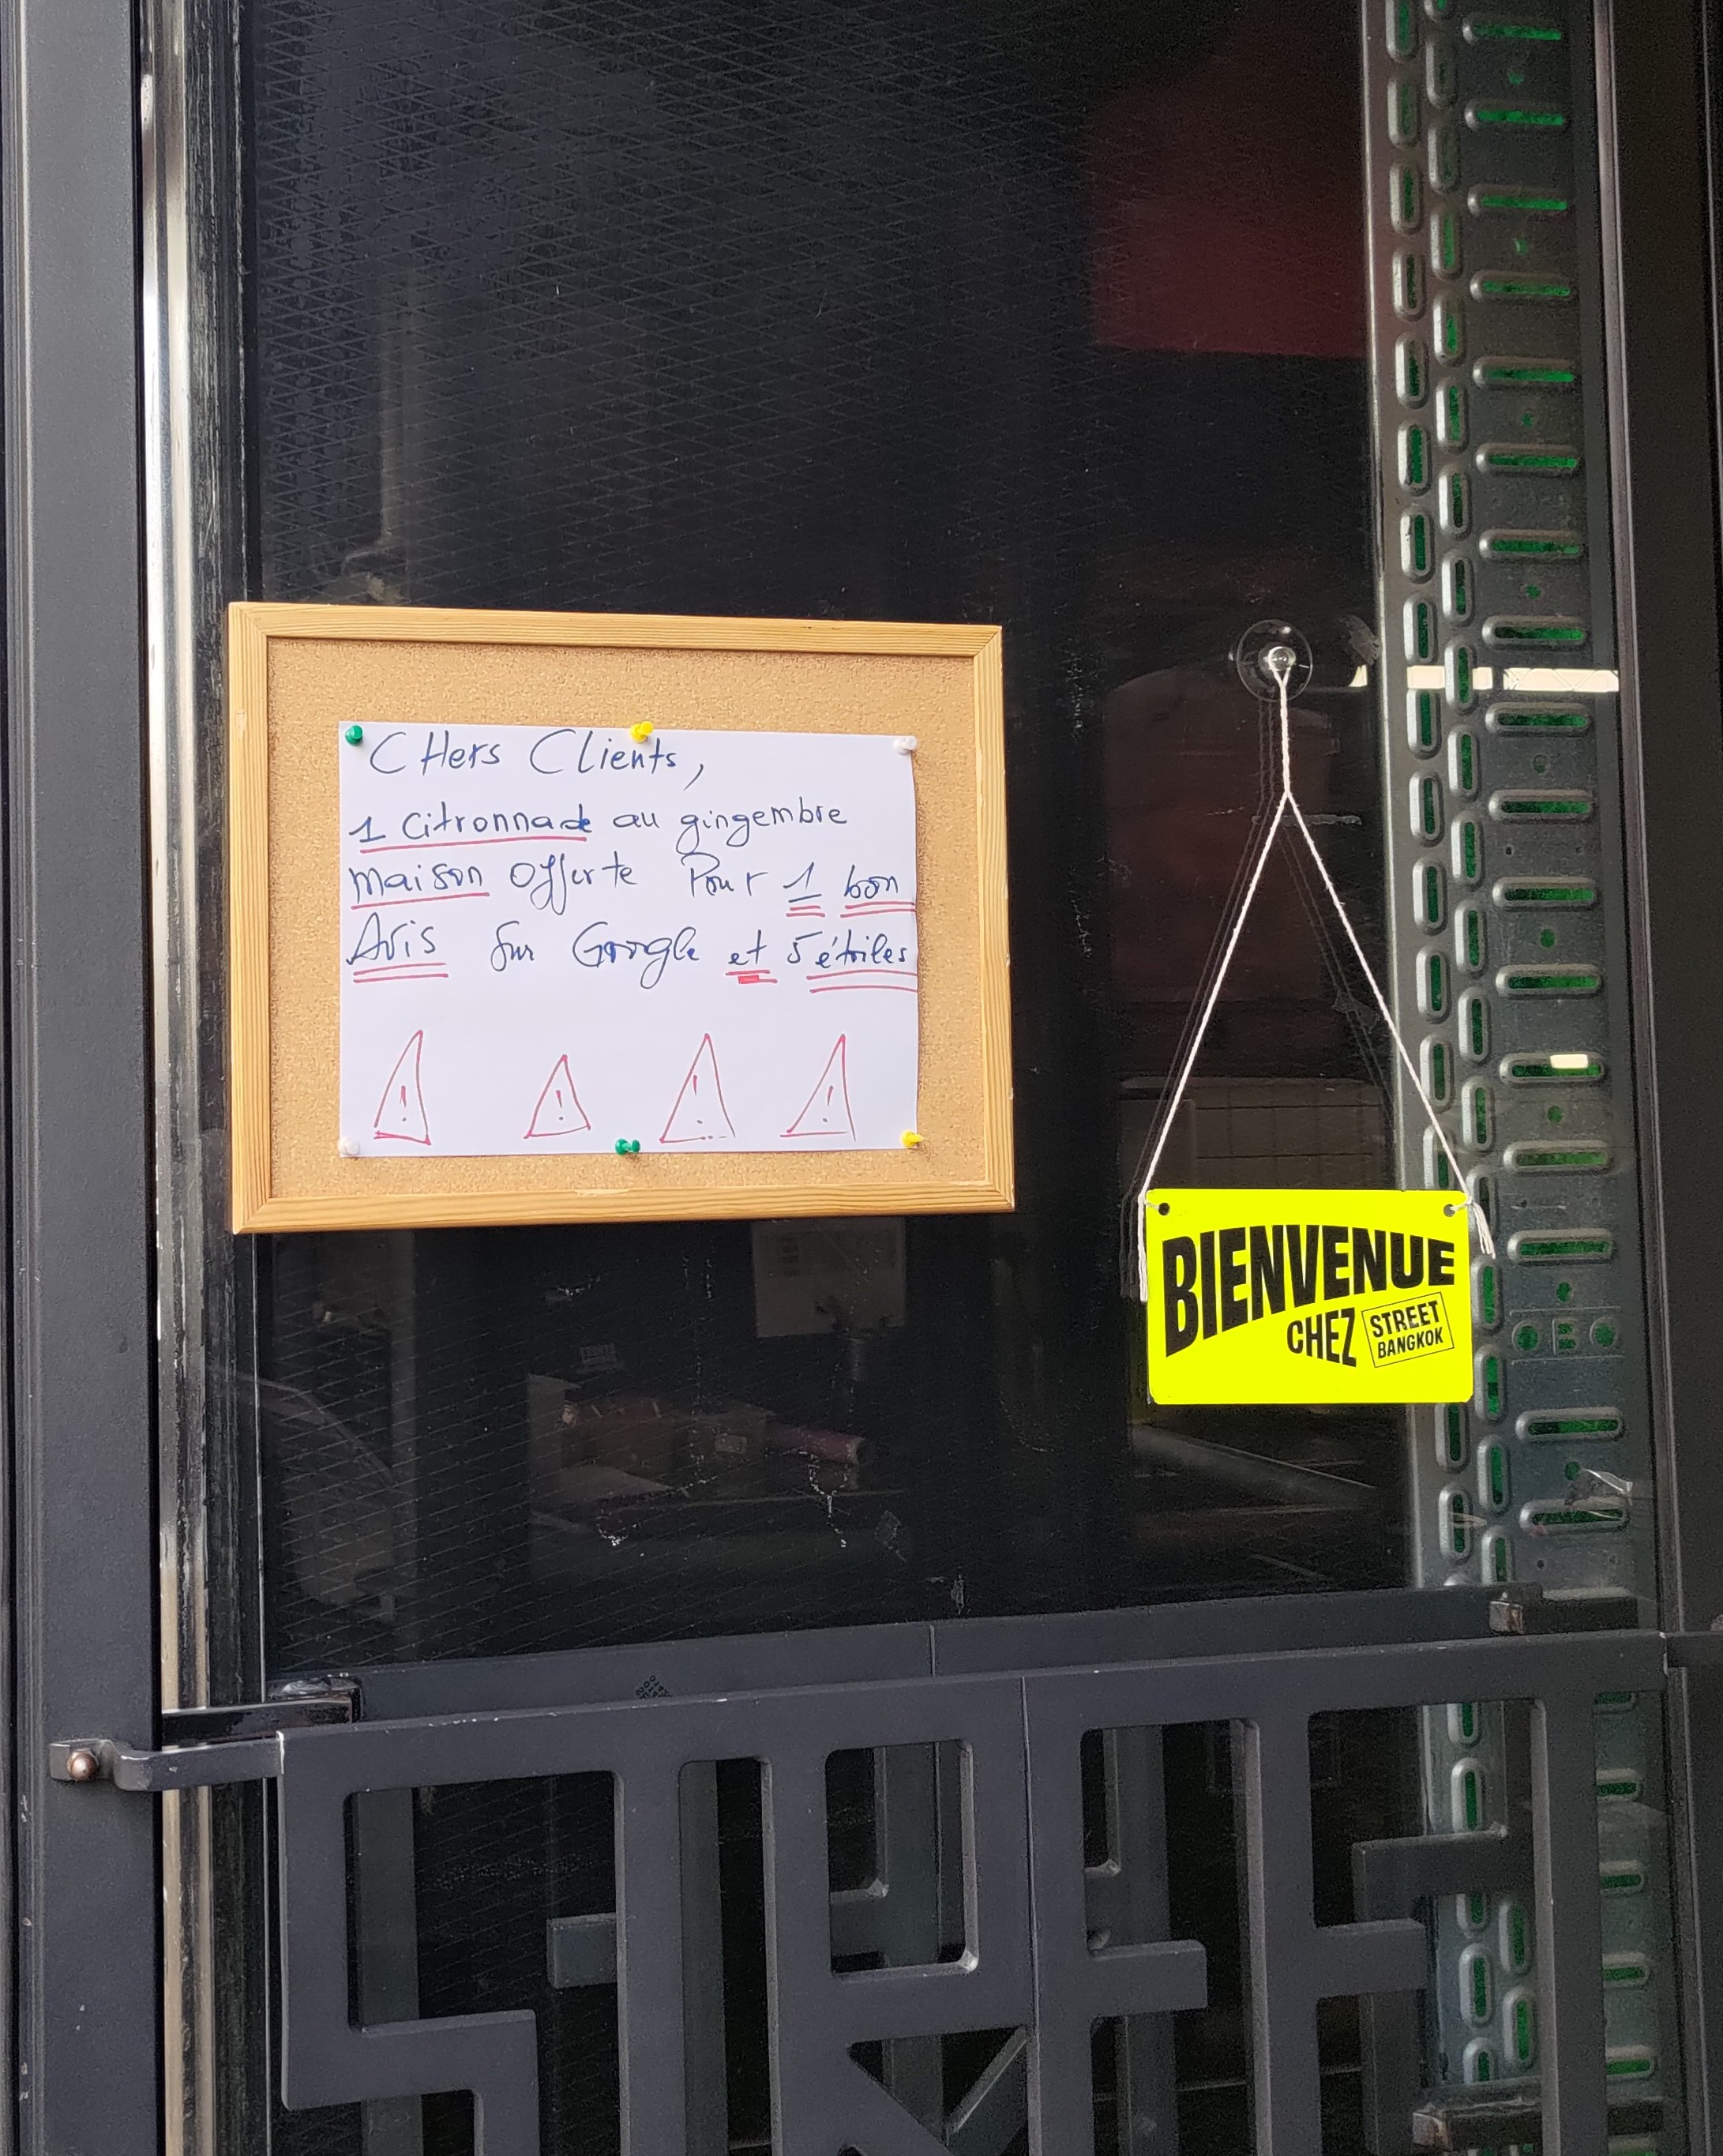 CHers Clients,
1 citronnade au gingembre
maison offerte Pour 1 bon
Avis sur Google et 5 étoiles
! ! ! !
BIENVENUE
CHEZ STREET
BANGKOK
STREET